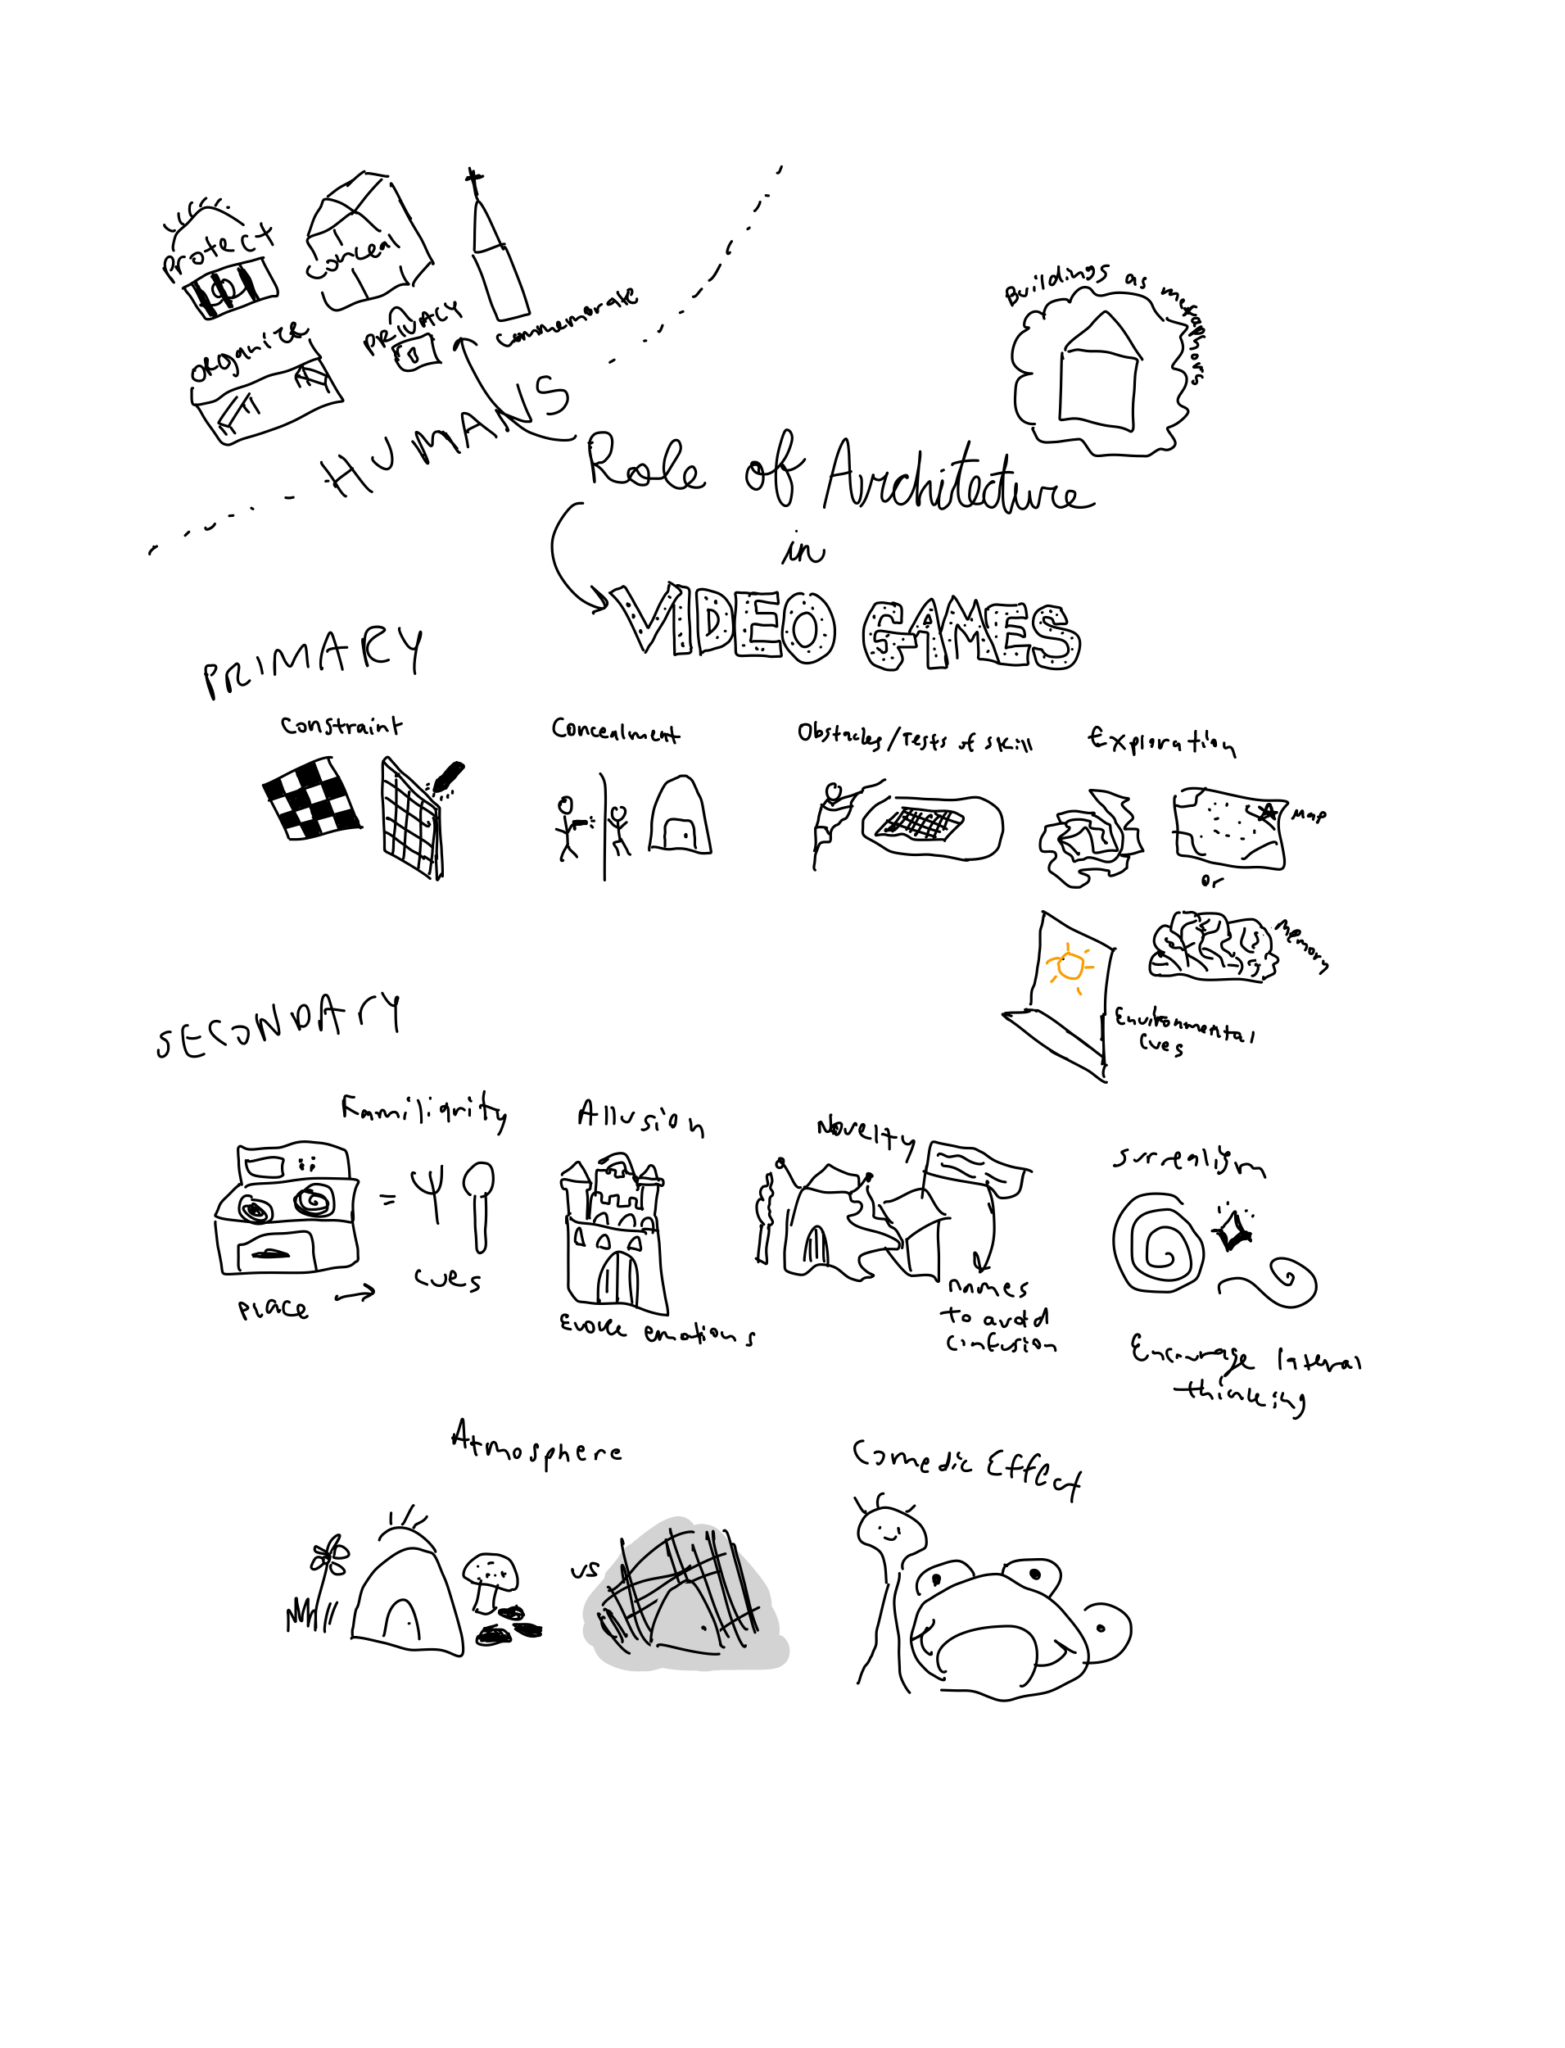 Protect
Conceal
Commemorate
Organize
PRIVACY
HUMANS
Buildings as metaphors
Role of Architecture
in
VIDEO GAMES
PRIMARY
Constraint
Concealment
Obstacles/Tests of skill
Exploration
Map
or
Memory
Environmental
Cues
SECONDARY
Familiarity
=
Place →
cues
Allusion
Evoke emotions
Novelty
names
to avoid
confusion
Surrealism
Encourage lateral
thinking
Atmosphere
vs
Comedic Effect